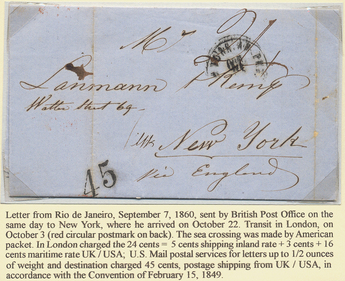 Mr
Lanmann & Kemp
Water Street 69
New York
via England
45
Letter from Rio de Janeiro, September 7, 1860, sent by British Post Office on the
same day to New York, where he arrived on October 22. Transit in London, on
October 3 (red circular postmark on back). The sea crossing was made by American
packet. In London charged the 24 cents = 5 cents shipping inland rate + 3 cents + 16
cents maritime rate UK / USA; U.S. Mail postal services for letters up to 1/2 ounces
of weight and destination charged 45 cents, postage shipping from UK / USA, in
accordance with the Convention of February 15, 1849.